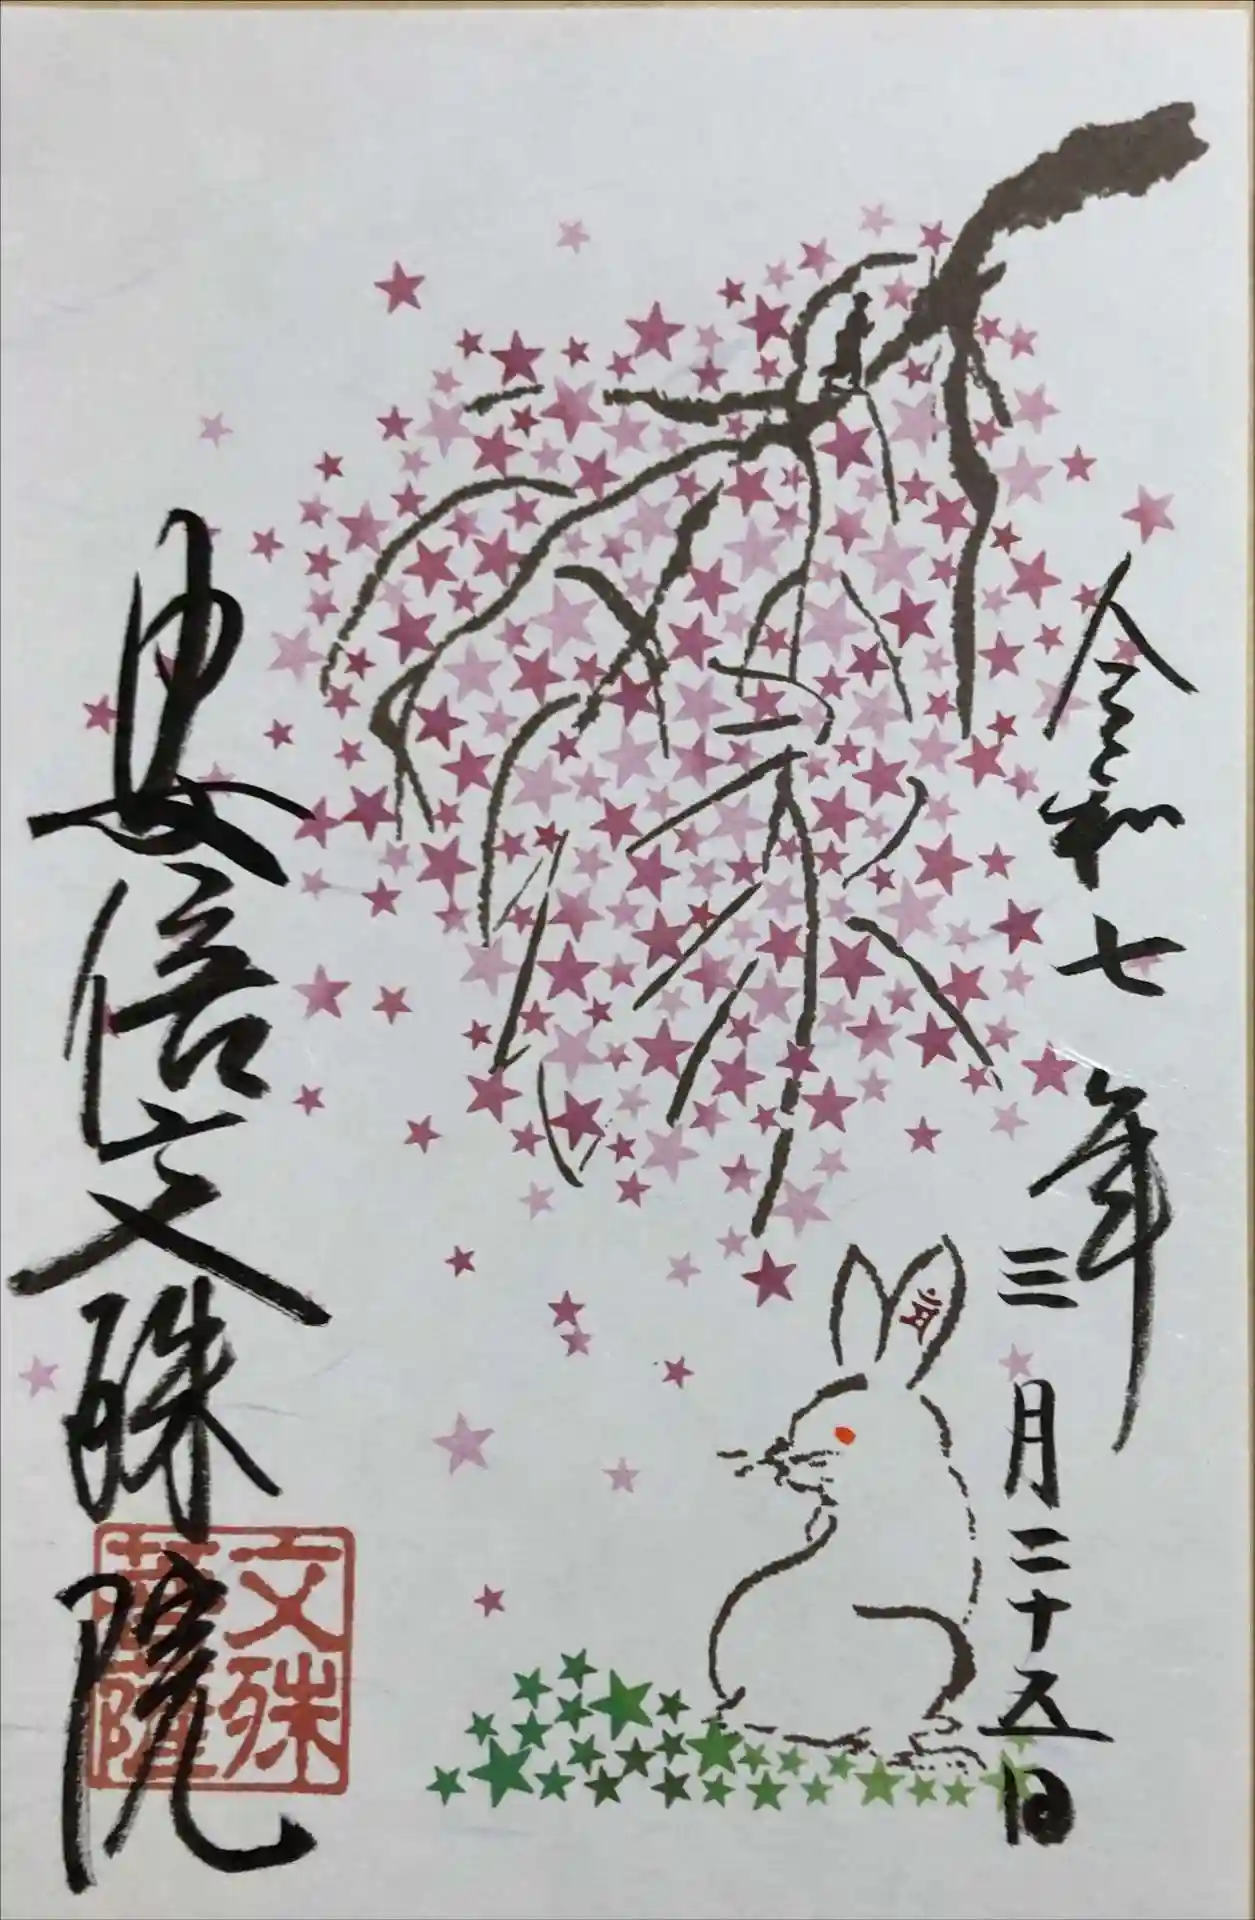 令和七年
三月二十五日
安倍文殊院
文殊
菩薩